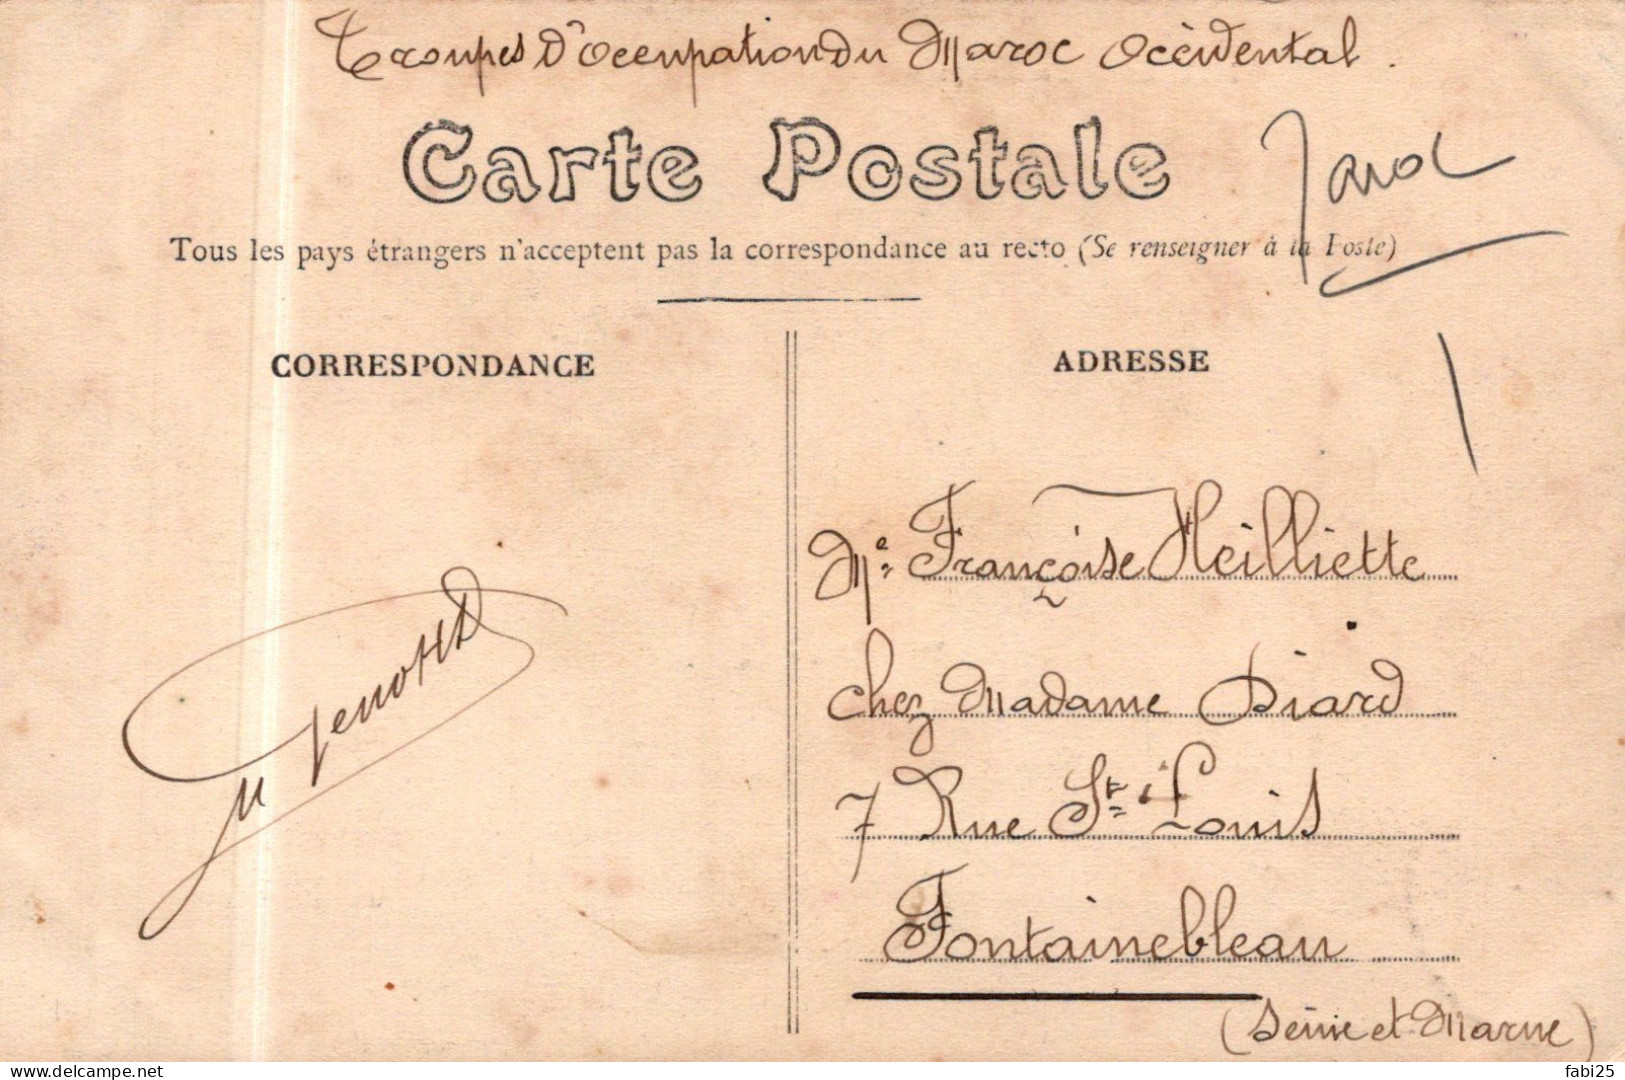 Troupes D'Occupation du Maroc Occidental.
Carte Postale
Tous les pays étrangers n'acceptent pas la correspondance au recto (Se renseigner à la Poste)
CORRESPONDANCE
ADRESSE
Me Françoise Heilliette
chez Madame Diard
7 Rue St Louis
Fontainebleau
(Seine et Marne)
delcampe.net
fabi25